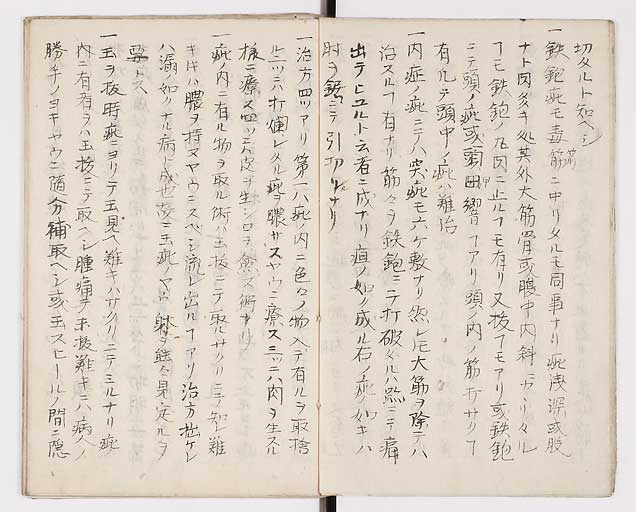 切タルト知ヘシ
一鉄鉋疵モ毒箭ニ中リタルモ同事ナリ疵浅深或股
ナト肉多キ処其外大筋骨或腹中内斜ニヤフリタル
フモ鉄鉋ノ丸肉ニ止ルフモ有リ又後フモアリ或鉄鉋
ニテ頭ノ疵或 響フアリ頭ノ内ノ筋打サクフ
有ルヲ頭中ノ疵ハ難治
一内症ノ疵ニテハ突疵モ六ケ敷ナリ然レ𪜈大筋ヲ除テハ
治スルフ有ナリ筋々ヲ鉄鉋ニテ打破タルハ ニテ痛
出テヒユルト云者ニ成ナリ 如ク成ル右ノ疵ノ如キハ
肘ヲ鋸ニテ引切ルナリ
一治方四ツアリ第一ハ疵ノ内ニ色々ノ物入テ有ルヲ取捨
ル二ツニハ打爛レタル疵ヲ膿サスヤウニ療ス三ツニハ肉ヲ生スル
様ニ療ス四ツニハ皮ヲ生シロヲ愈ス術ナリ
一疵ノ内ニ有ル物ヲ取ル術ハ玉抜ニテ取ルサクリニテ知レ難
キキハ膿ヲ持スヤウニスベシ流レ出ルフアリ治方拙ケレ
ハ漏ノ如クナル病ト成也故ニ玉疵ノアル 能々見定ルヲ
要トス
一玉ヲ抜時疵ニヨリテ玉見ヘ難キハサクリニテミルナリ疵
内ニ有者ヲハ玉抜ニテ取ヘシ腫痛テ玉抜難キニハ病人ノ
勝手ノヨキヤウニ随分補取ヘシ或玉スヒールノ間ニ隠